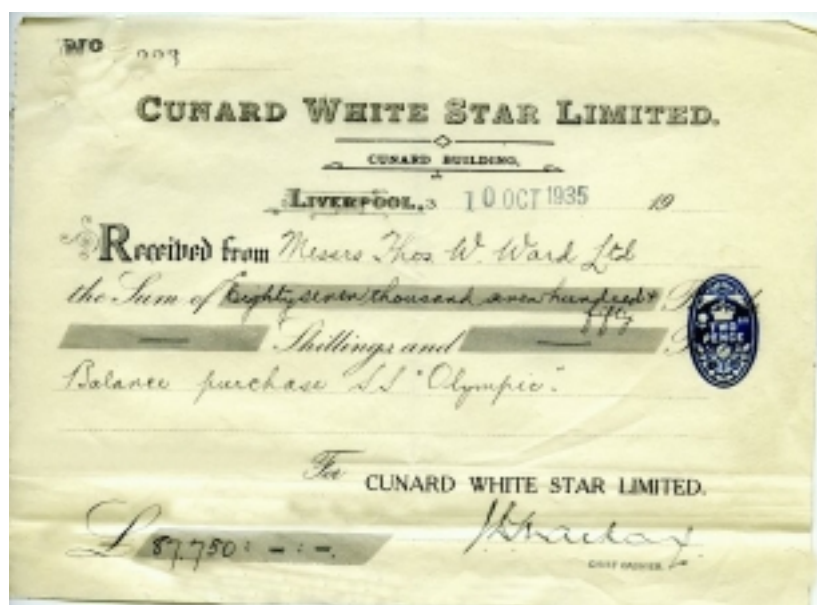 No
CUNARD WHITE STAR LIMITED.
CUNARD BUILDING,
LIVERPOOL, 3 10 OCT 1935 19
Received from Messrs Thos W. Ward Ltd
the Sum of Eighty seven thousand seven hundred &
fifty
— Shillings and —
TWO
PENCE
Balance purchase SS "Olympic".
For CUNARD WHITE STAR LIMITED.
£ 87,750 : - : -.
CHIEF CASHIER.